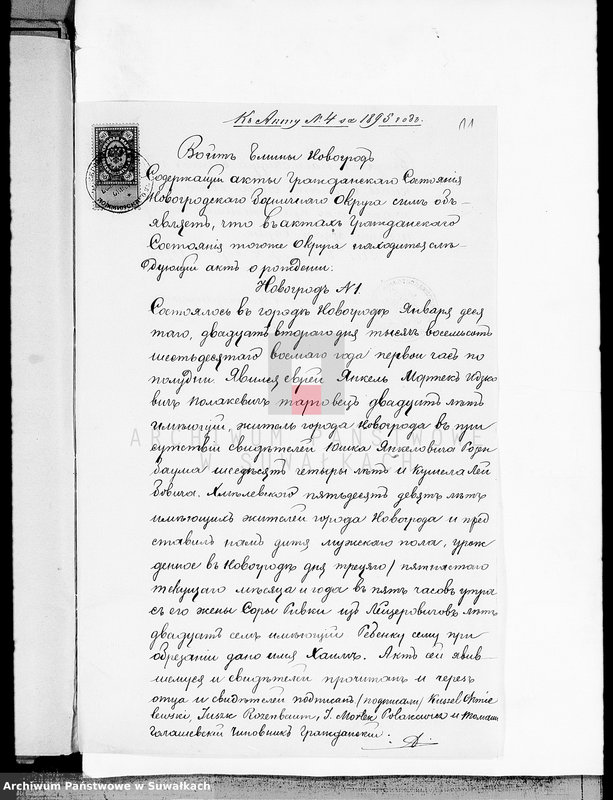 Къ Акту № 4 за 1895 годъ.
Войтъ Гмины Новогродъ
Содержащій акты Гражданскаго Состоянія
Новогродскаго Божничнаго Округа симъ объ-
являетъ, что въ актахъ Гражданскаго
Состоянія тогоже Округа находится слѣ-
дующій актъ о рожденіи:
Новогродъ №1.
Состоялось въ городѣ Новогродѣ Января деся
таго, двадцать втораго дня тысяч восемьсотъ
шестьдесятаго восьмаго года первой часъ по
полудни. Явился еврей Янкель Мортек Ицко
вичъ Полакевич тарговецъ двадцать лѣтъ
имѣющій, житель города Новогрода въ при
сутствіи свидѣтелей Юшка Янкелевича Розен
баума шесдесятъ четыры лѣтъ и Кушела Лей
бовича Хмѣлевскаго пятьдесятъ девять лѣтъ
имѣющихъ жителей города Новогрода и пред
ставилъ намъ дитя мужескаго пола, урож
денное въ Новогродѣ дня трецяго/пятнастаго
текущаго мѣсяца и года въ пять часовъ утра
съ его жены Соры Ривки изъ Лейзеровичовъ лѣтъ
двадцать семъ имѣющій Ребенку сему при
обрезаніи дано имя Хаимъ. Актъ сей явив-
шемуся и свидѣтелей прочитанъ и черезъ
отца и свидѣтелей подписанъ /подписали/ Kuszel Chmie
lewski, Juszk Rozenbaum, J. Mortek Polakiewicz и
чиновникъ Гражданскій.
ARCHIWUM PAŃSTWOWE
W SUWAŁKACH
Archiwum Państwowe w Suwałkach